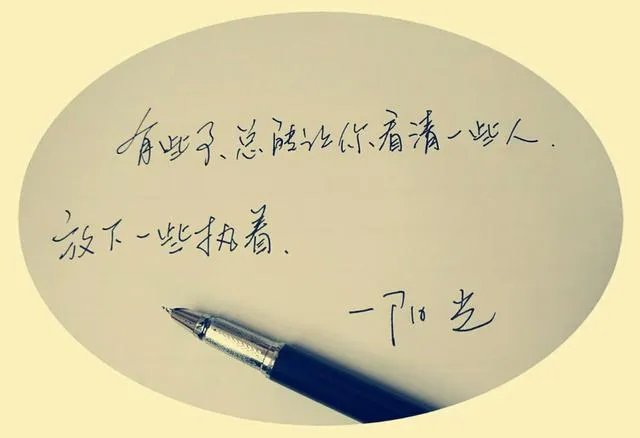 有些事、总能让你看清一些人.
放下一些执着.
一阳光